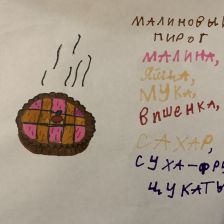 МАЛИНОВЫЙ
ПИРОГ
МАЛИНА,
ЯЙЦА,
МУКА,
ПШЕНКА,
САХАР,
СУХА-ФР
ЦУКАТЫ